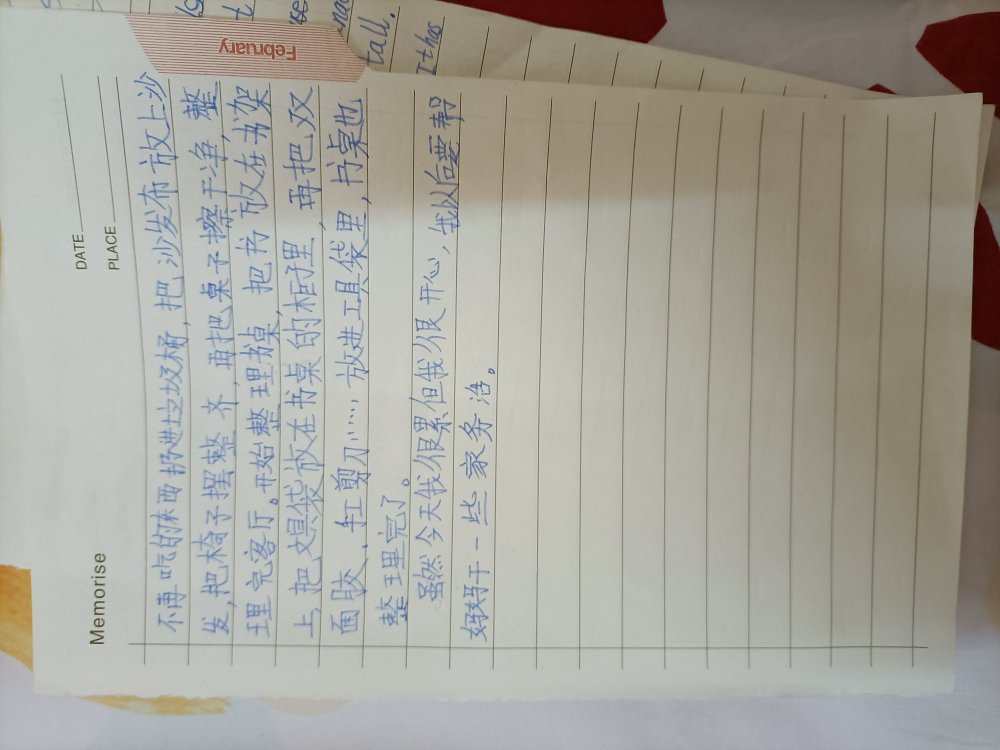 Memorise
DATE
PLACE
不再吃的东西扔进垃圾桶,把沙发布放上沙
发,把椅子摆整齐,再把桌子擦干净,整
理完客厅。开始整理书桌,把书放在书架
上,把文具袋放在书桌的柜子里,再把双
面胶、剪刀……,放进工具袋里,书桌也
整理完了。
虽然今天我很累但我很开心,我以后要帮
妈妈干一些家务活。
February
tall.
It has